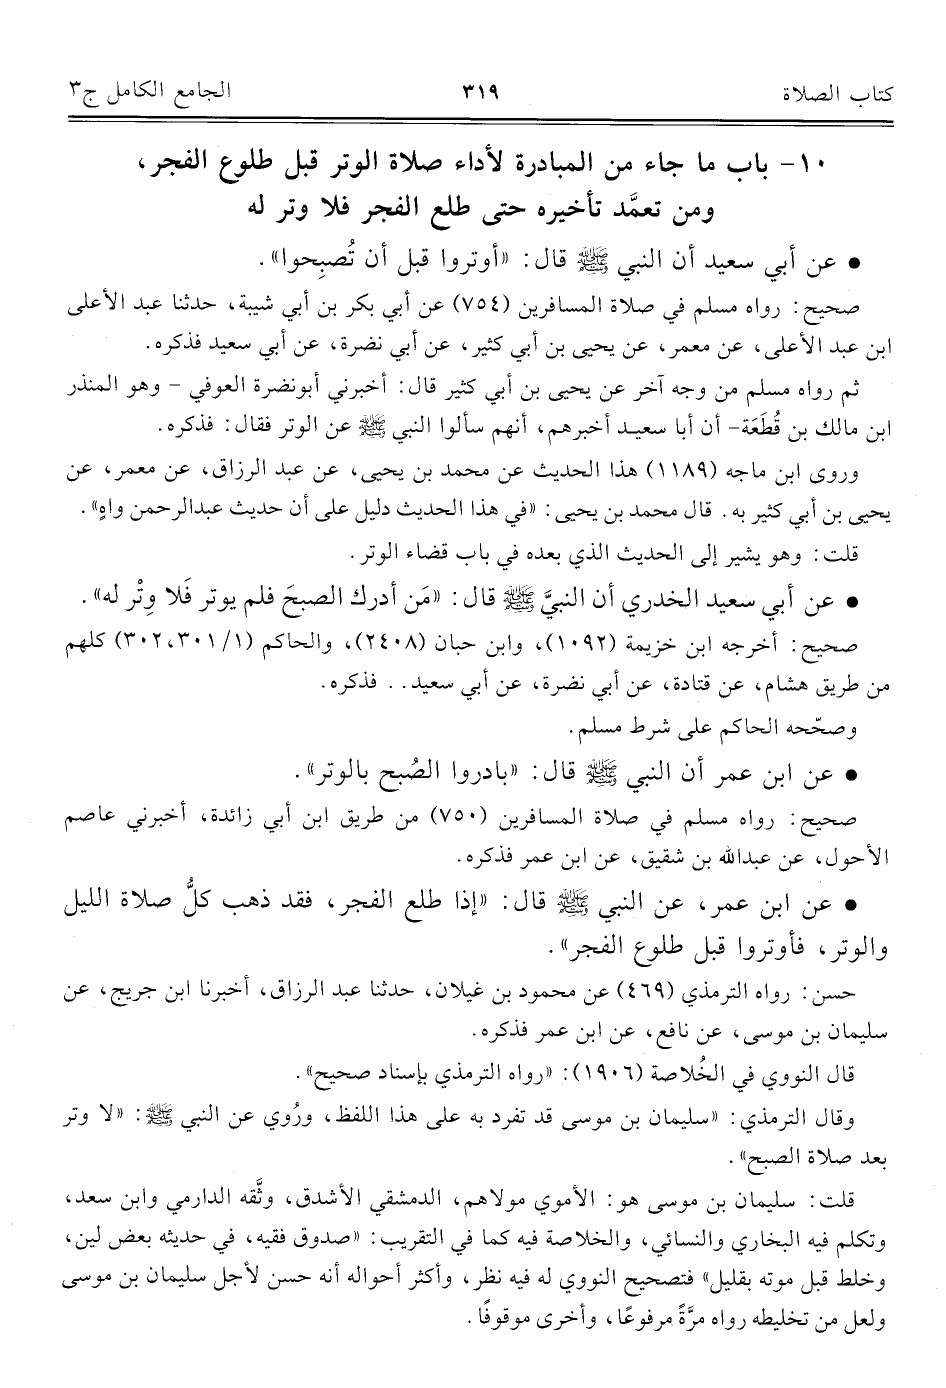 كتاب الصلاة ٣١٩ الجامع الكامل ج٣
١٠- باب ما جاء من المبادرة لأداء صلاة الوتر قبل طلوع الفجر،
ومن تعمَّد تأخيره حتى طلع الفجر فلا وتر له
• عن أبي سعيد أن النبي ﷺ قال: «أوتروا قبل أن تُصبِحوا».
صحيح: رواه مسلم في صلاة المسافرين (٧٥٤) عن أبي بكر بن أبي شيبة، حدثنا عبد الأعلى
ابن عبد الأعلى، عن معمر، عن يحيى بن أبي كثير، عن أبي نضرة، عن أبي سعيد فذكره.
ثم رواه مسلم من وجه آخر عن يحيى بن أبي كثير قال: أخبرني أبونضرة العوفي - وهو المنذر
ابن مالك بن قُطَعَة- أن أبا سعيد أخبرهم، أنهم سألوا النبي ﷺ عن الوتر فقال: فذكره.
وروى ابن ماجه (١١٨٩) هذا الحديث عن محمد بن يحيى، عن عبد الرزاق، عن معمر، عن
يحيى بن أبي كثير به. قال محمد بن يحيى: «في هذا الحديث دليل على أن حديث عبدالرحمن واهٍ».
قلت: وهو يشير إلى الحديث الذي بعده في باب قضاء الوتر.
• عن أبي سعيد الخدري أن النبيَّ ﷺ قال: «مَن أدرك الصبحَ فلم يوتر فَلا وِتْر له».
صحيح: أخرجه ابن خزيمة (١٠٩٢)، وابن حبان (٢٤٠٨)، والحاكم (١/ ٣٠١،٣٠٢) كلهم
من طريق هشام، عن قتادة، عن أبي نضرة، عن أبي سعيد.. فذكره.
وصحّحه الحاكم على شرط مسلم.
• عن ابن عمر أن النبي ﷺ قال: «بادروا الصُبح بالوتر».
صحيح: رواه مسلم في صلاة المسافرين (٧٥٠) من طريق ابن أبي زائدة، أخبرني عاصم
الأحول، عن عبدالله بن شقيق، عن ابن عمر فذكره.
• عن ابن عمر، عن النبي ﷺ قال: «إذا طلع الفجر، فقد ذهب كلُّ صلاة الليل
والوتر، فأوتروا قبل طلوع الفجر».
حسن: رواه الترمذي (٤٦٩) عن محمود بن غيلان، حدثنا عبد الرزاق، أخبرنا ابن جريج، عن
سليمان بن موسى، عن نافع، عن ابن عمر فذكره.
قال النووي في الخُلاصة (١٩٠٦): «رواه الترمذي بإسناد صحيح».
وقال الترمذي: «سليمان بن موسى قد تفرد به على هذا اللفظ، ورُوي عن النبي ﷺ: «لا وتر
بعد صلاة الصبح».
قلت: سليمان بن موسى هو: الأموي مولاهم، الدمشقي الأشدق، وثَّقه الدارمي وابن سعد،
وتكلم فيه البخاري والنسائي، والخلاصة فيه كما في التقريب: «صدوق فقيه، في حديثه بعض لين،
وخلط قبل موته بقليل» فتصحيح النووي له فيه نظر، وأكثر أحواله أنه حسن لأجل سليمان بن موسى
ولعل من تخليطه رواه مرَّةً مرفوعًا، وأخرى موقوفًا.